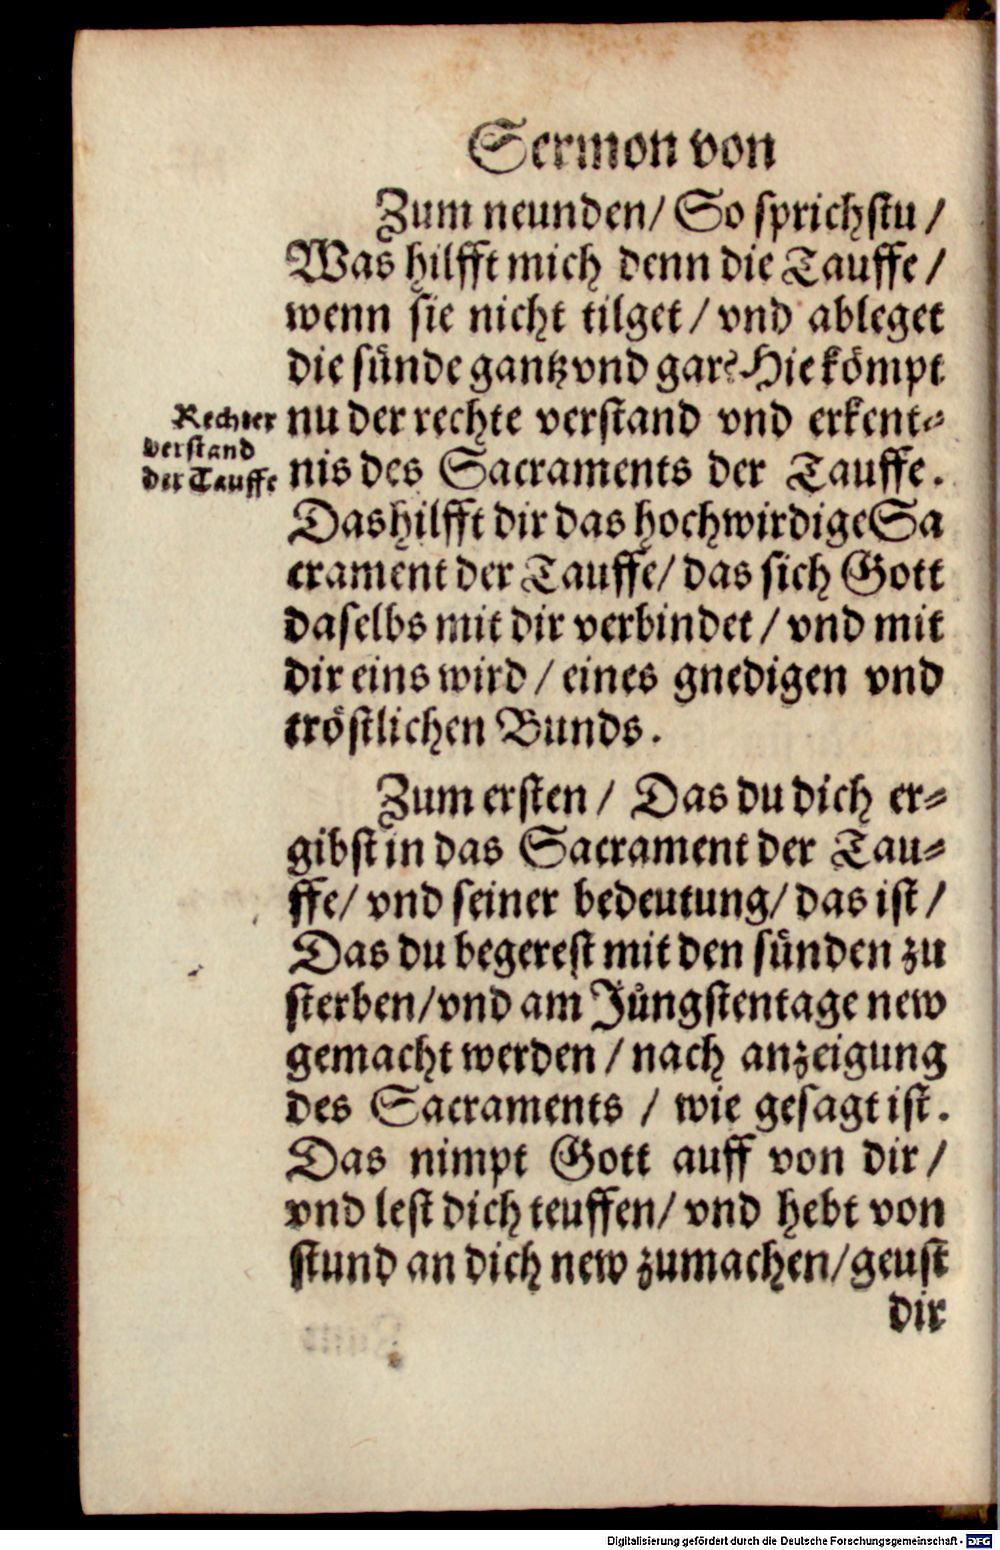 Sermon von
Zum neunden/ So sprichstu /
Was hilfft mich denn die Tauffe /
wenn sie nicht tilget / vnd ableget
die sünde gantz vnd gar? Hie kömpt
Rechter
verstand
der Tauffe
nu der rechte verstand vnd erkent⸗
nis des Sacraments der Tauffe.
Das hilfft dir das hochwirdige Sa
crament der Tauffe/ das sich Gott
daselbs mit dir verbindet / vnd mit
dir eins wird / eines gnedigen vnd
tröstlichen Bunds.
Zum ersten / Das du dich er⸗
gibst in das Sacrament der Tau⸗
ffe/ vnd seiner bedeutung/ das ist /
Das du begerest mit den sünden zu
sterben/vnd am Jüngstentage new
gemacht werden / nach anzeigung
des Sacraments / wie gesagt ist.
Das nimpt Gott auff von dir /
vnd lest dich teuffen/ vnd hebt von
stund an dich new zumachen/geust
dir
Digitalisierung gefördert durch die Deutsche Forschungsgemeinschaft - DFG